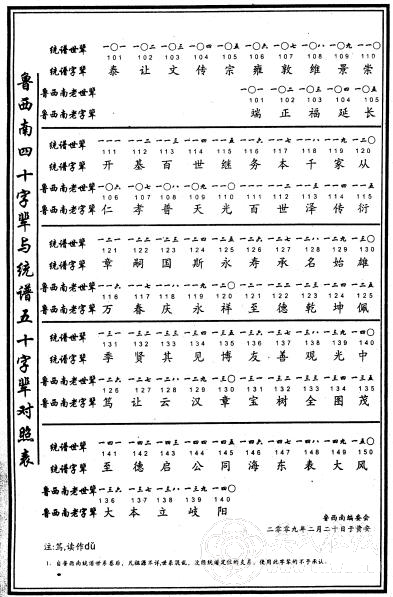 鲁西南四十字辈与统谱五十字辈对照表
统谱世辈 一〇一 一〇二 一〇三 一〇四 一〇五 一〇六 一〇七 一〇八 一〇九 一一〇
101 102 103 104 105 106 107 108 109 110
统谱字辈 泰 让 文 传 宗 雍 敦 维 景 崇
鲁西南老世辈 一〇一 一〇二 一〇三 一〇四 一〇五
101 102 103 104 105
鲁西南老字辈 端 正 福 延 长
一一一 一一二 一一三 一一四 一一五 一一六 一一七 一一八 一一九 一二〇
统谱世辈 111 112 113 114 115 116 117 118 119 120
统谱字辈 开 基 百 世 继 务 本 千 家 从
鲁西南老世辈 一〇六 一〇七 一〇八 一〇九 一一〇 一一一 一一二 一一三 一一四 一一五
106 107 108 109 110 111 112 113 114 115
鲁西南老字辈 仁 孝 普 天 光 百 世 泽 传 衍
统谱世辈 一二一 一二二 一二三 一二四 一二五 一二六 一二七 一二八 一二九 一三〇
121 122 123 124 125 126 127 128 129 130
统谱字辈 章 嗣 国 斯 永 寿 承 名 始 雄
鲁西南老世辈 一一六 一一七 一一八 一一九 一二〇 一二一 一二二 一二三 一二四 一二五
116 117 118 119 120 121 122 123 124 125
鲁西南老字辈 万 春 庆 永 祥 至 德 乾 坤 佩
统谱世辈 一三一 一三二 一三三 一三四 一三五 一三六 一三七 一三八 一三九 一四〇
131 132 133 134 135 136 137 138 139 140
统谱字辈 季 贤 其 见 博 友 善 观 光 中
鲁西南老世辈 一二六 一二七 一二八 一二九 一三〇 一三一 一三二 一三三 一三四 一三五
126 127 128 129 130 131 132 133 134 135
鲁西南老字辈 笃 让 云 汉 章 宝 树 全 图 茂
统谱世辈 一四一 一四二 一四三 一四四 一四五 一四六 一四七 一四八 一四九 一五〇
141 142 143 144 145 146 147 148 149 150
统谱字辈 至 德 启 公 同 海 东 表 大 风
鲁西南老世辈 一三六 一三七 一三八 一三九 一四〇
136 137 138 139 140
鲁西南老字辈 大 本 立 岐 阳
鲁西南编委会
二零零九年二月二十日于费安
注:笃,读作dǔ
1、自鲁西南统谱世系卷后,凡祖源不详,世系混乱,

统谱定位的支系,使用此字辈的不予承认。